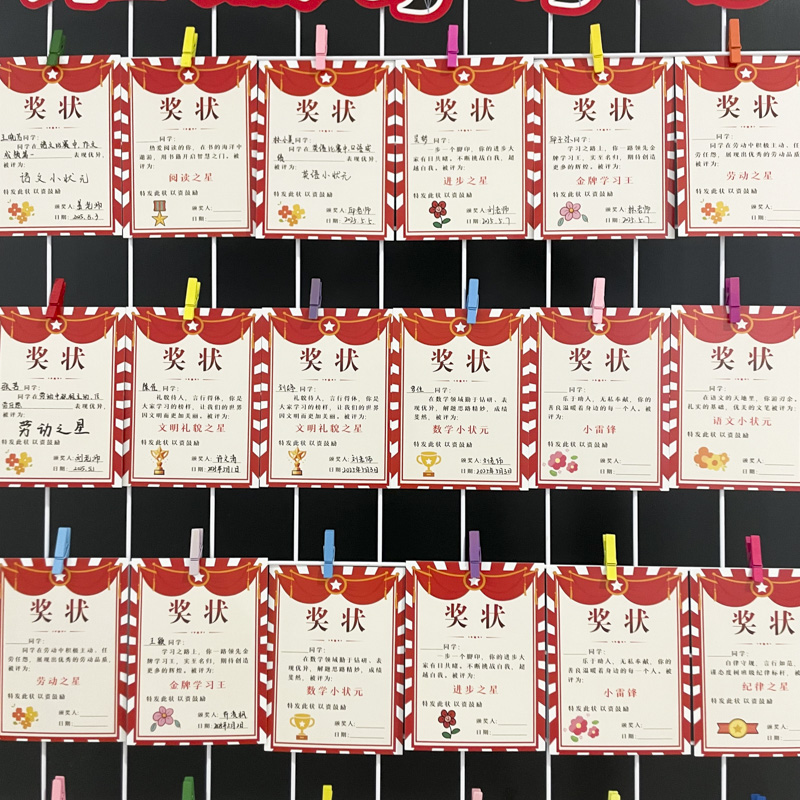 奖状
同学:
同学在语文比赛中,作文
表现优异,
被评为:
语文小状元
特发此状 以资鼓励
颁奖人:
日期:
奖状
同学:
热爱阅读的你,在书的海洋中
遨游,用书籍开启智慧之门。被
评为:
阅读之星
特发此状 以资鼓励
颁奖人:
日期:
奖状
林小美同学:
同学在英语比赛中口语成
绩 表现优异,
被评为:
英语小状元
特发此状 以资鼓励
颁奖人:邱老师
日期:2025.5.5
奖状
同学:
一步一个脚印,你的进步大
家有目共睹。不断挑战自我、超
越自我。被评为:
进步之星
特发此状 以资鼓励
颁奖人:刘老师
日期:2025.5.7
奖状
同学:
学习之路上,你一路领先金
牌学习王,实至名归,期待创造
更多的辉煌。被评为:
金牌学习王
特发此状 以资鼓励
颁奖人:林老师
日期:2025.5.7
奖状
同学:
同学在劳动中积极主动,任
劳任怨,展现出优秀的劳动品质,
被评为:
劳动之星
特发此状 以资鼓励
颁奖人:
日期:
奖状
同学:
同学在劳动中积极主动,任
劳任怨 表现优异,
被评为:
劳动之星
特发此状 以资鼓励
颁奖人:刘老师
日期:
奖状
同学:
礼貌待人,言行得体,你是
大家学习的榜样,让我们的世界
因文明而更加美丽。被评为:
文明礼貌之星
特发此状 以资鼓励
颁奖人:
日期:
奖状
同学:
礼貌待人,言行得体,你是
大家学习的榜样,让我们的世界
因文明而更加美丽。被评为:
文明礼貌之星
特发此状 以资鼓励
颁奖人:刘老师
日期:2022年3月3日
奖状
同学:
在数学领域勤于钻研,表
现优异,解题思路精妙,成绩
斐然,被评为:
数学小状元
特发此状 以资鼓励
颁奖人:刘老师
日期:2022年3月3日
奖状
同学:
乐于助人、无私奉献,你的
善良温暖着身边的每一个人。被
评为:
小雷锋
特发此状 以资鼓励
颁奖人:
日期:
奖状
同学:
在语文的天地里,你游刃余,
扎实的基础、优美的文笔被评为:
语文小状元
特发此状 以资鼓励
颁奖人:
日期:
奖状
同学:
同学在劳动中积极主动,任
劳任怨,展现出优秀的劳动品质,
被评为:
劳动之星
特发此状 以资鼓励
颁奖人:
日期:
奖状
王颖同学:
学习之路上,你一路领先金
牌学习王,实至名归,期待创造
更多的辉煌。被评为:
金牌学习王
特发此状 以资鼓励
颁奖人:
日期:
奖状
同学:
在数学领域勤于钻研,表
现优异,解题思路精妙,成绩
斐然,被评为:
数学小状元
特发此状 以资鼓励
颁奖人:
日期:
奖状
同学:
一步一个脚印,你的进步大
家有目共睹。不断挑战自我、超
越自我。被评为:
进步之星
特发此状 以资鼓励
颁奖人:
日期:
奖状
同学:
乐于助人、无私奉献,你的
善良温暖着身边的每一个人。被
评为:
小雷锋
特发此状 以资鼓励
颁奖人:
日期:
奖状
同学:
自律守规,言行如范,
谨态度树班级纪律标杆。被
纪律之星
特发此状 以资鼓励
颁奖人:
日期: